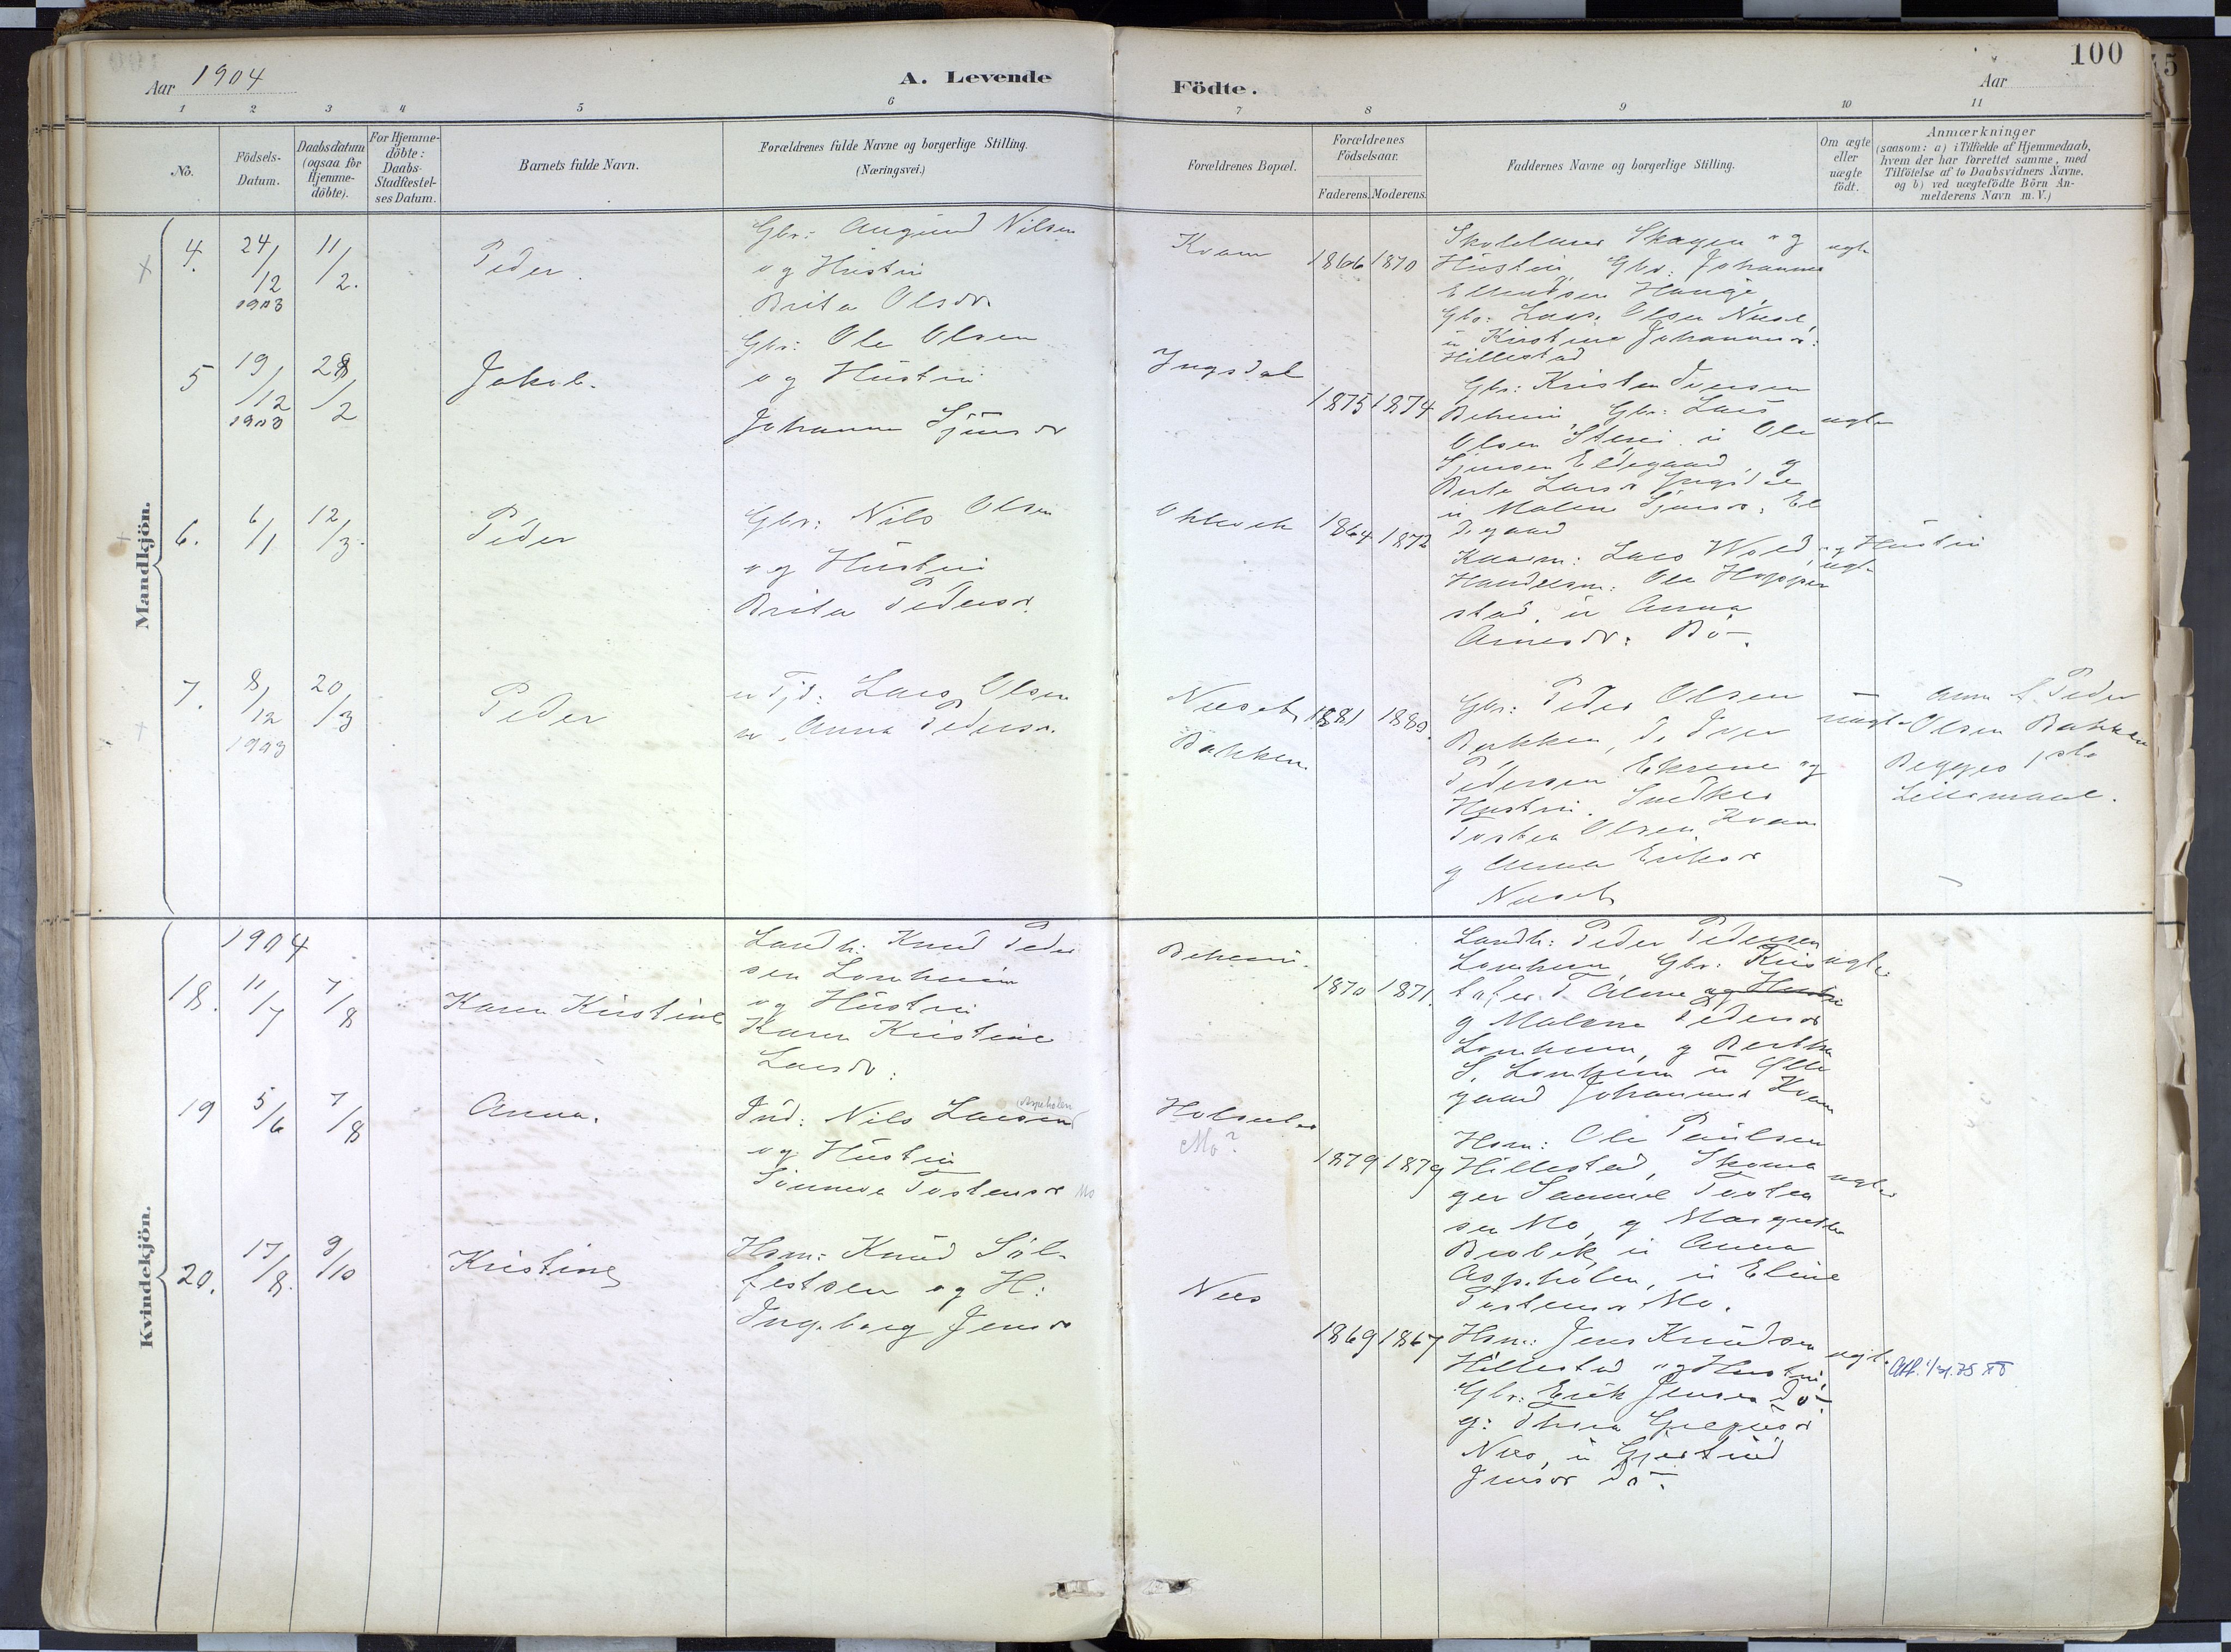 100
Aar 1904
A. Levende
Födte.
Aar
1 2 3 4 5 6 7 8 9 10 11
No.
Födsels-
Datum.
Daabsdatum
(ogsaa for
Hjemme-
döbte).
For Hjemme-
döbte:
Daabs-
Stadfæstel-
ses Datum.
Barnets fulde Navn.
Forældrenes fulde Navne og borgerlige Stilling.
(Næringsvei.)
Forældrenes Bopæl.
Forældrenes
Födselsaar.
Faderens. Moderens.
Faddernes Navne og borgerlige Stilling.
Om ægte
eller
uægte
födt.
Anmærkninger
(saasom: a) i Tilfælde af Hjemmedaab,
hvem der har forrettet samme, med
Tilföielse af to Daabsvidners Navne,
og b) ved uægtefödte Börn An-
melderens Navn m. V.)
Mandkjön.
4.
24/12
1903
11/2.
Peder.
Gbr: Augund Nilsen
og Hustru
Brita Olsdr.
Kvam
1866 1870
Skolelærer Skagen og
Hustru, Gbr: Johannes
Ellendsen Hauge,
Gbr: Lars Olsen
Hillestad
ægte
5
19/12
1903
28/2
Jakob.
Gbr: Ole Olsen
og Hustru
Johanne Sjursdr
Ingsdal
1875 1874
Gbr: Kristen Iversen
Gbr: Lars
Olsen u Ole
Sjursen Eldegaard, og
u Malene Sjursdr. El
degaard
ægte
6.
6/1
12/3.
Peder
Gbr: Nils Olsen
og Hustru
Brita Pedersdr.
1864 1872
Lars Wold, og Hustru
Handelsm: Ole Hopper
stad, u Anna
Arnesdr: Bö.
ægte
7.
8/12
1903
20/3
Peder
u Tj: Lars Olsen
u Anna Pedersdr.
Nuset
Bakken
1881 1880.
Gbr: Peder Olsen
Bakken, d. Iver
Pedersen Ekrene og
Hustru. Snedker
Tosten Olsen Kvam
g Anna Eriksdr
Nuset
uægte
Anm. f. Peder
Olsen Bakken
Begges 1ste
Leiermaal.
Kvindekjön.
1904
18.
11/7
7/8
Karen Kristine
Landh: Knud Peder
sen Lomheim
og Hustru
Karen Kristine
Larsdr:
1870 1871.
Landh: Peder Pedersen
Lomheim, Gbr: Kris
tofer T. Alme og Hustru
g Malene Pedersdr
Lomheim, g Berthe
S. Lomheim u Elle
gaard Johannesdr Kvam
ægte
19
5/6
7/8
Anna.
Ind: Nils Larsen
Aspeholen
og Hustru
Sönneva Tostensdr Mo
Mo?
1879 1879
Hsm: Ole Paulsen
Hillestad, Skoma
ger Samuel Tosten
sen Mo, g Margrethe
u Anna
Aspeholen, u Eline
Tostensdr Mo.
ægte
20.
17/8.
9/10
Kristine
Hsm: Knud Söl
festsen og H:
Ingeborg Jensdr
Nus
1869 1867
Hsm: Jens Knudsen
Hillestad og Hustru,
Gbr: Erik Jensen Dö.
Nus, u Gjertrud
Jensdr Dö.
ægte